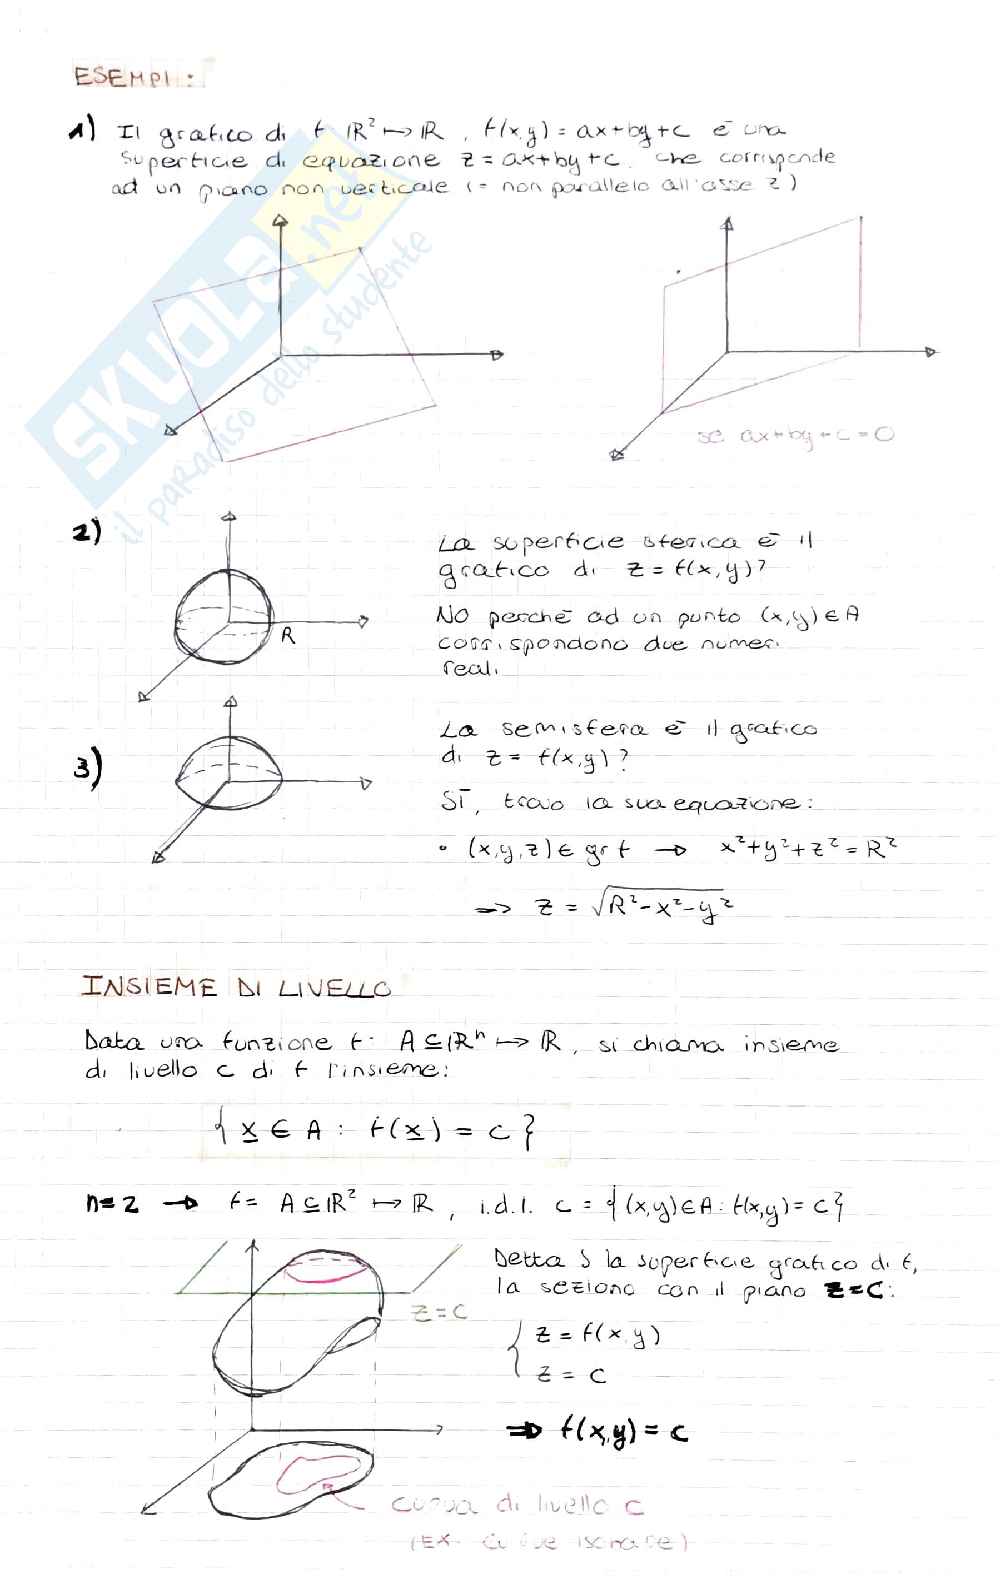 ESEMPI:
1) Il grafico di f ℝ² ↦ ℝ, f(x,y) = ax+by+c è una
superficie di equazione z = ax+by+c, che corrisponde
ad un piano non verticale (= non parallelo all'asse z)
SKUOLA.net
il paradiso dello studente
se ax+by+c=0
2)
La superficie sferica è il
grafico di z = f(x,y)?
NO perchè ad un punto (x,y) ∈ A
corrispondono due numeri
reali
R
3)
La semisfera è il grafico
di z = f(x,y)?
SÌ, trovo la sua equazione:
• (x,y,z) ∈ gr f → x²+y²+z² = R²
⇒ z = √(R²-x²-y²)
INSIEME DI LIVELLO
Data una funzione f: A ⊆ ℝⁿ ↦ ℝ, si chiama insieme
di livello c di f l'insieme:
{ x ∈ A : f(x) = c }
n=2 → f= A ⊆ ℝ² ↦ ℝ, i.d.l. c = { (x,y) ∈ A : f(x,y) = c }
Detta S la superficie grafico di f,
la seziono con il piano z=c:
z=c
{ z = f(x,y)
z = c
⇒ f(x,y) = c
curva di livello c
(EX. curve isobare)